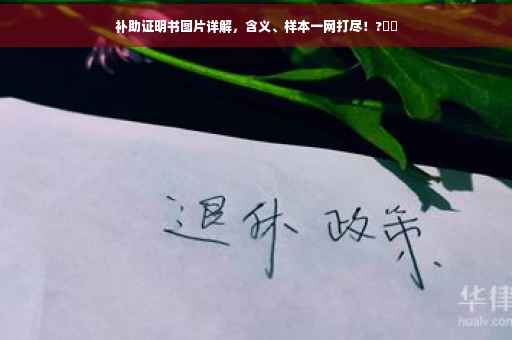 补助证明书图片详解，含义、样本一网打尽！?▯▯
退休 政策
华律
hualv.com